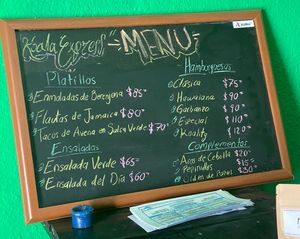 Koala Express
MENU
Platillos
Enmoladas de Berenjena $85
Flautas de Jamaica $80
Tacos de Avena en Salsa Verde $70
Ensaladas
Ensalada Verde $65
Ensalada del Día $60
Hamburguesas
Clásica $75
Hawaiana $90
Garbanzo $90
Especial $110
Koality $120
Complementos
Aros de Cebolla $20
Pepinillos $15
Orden de Papas $30